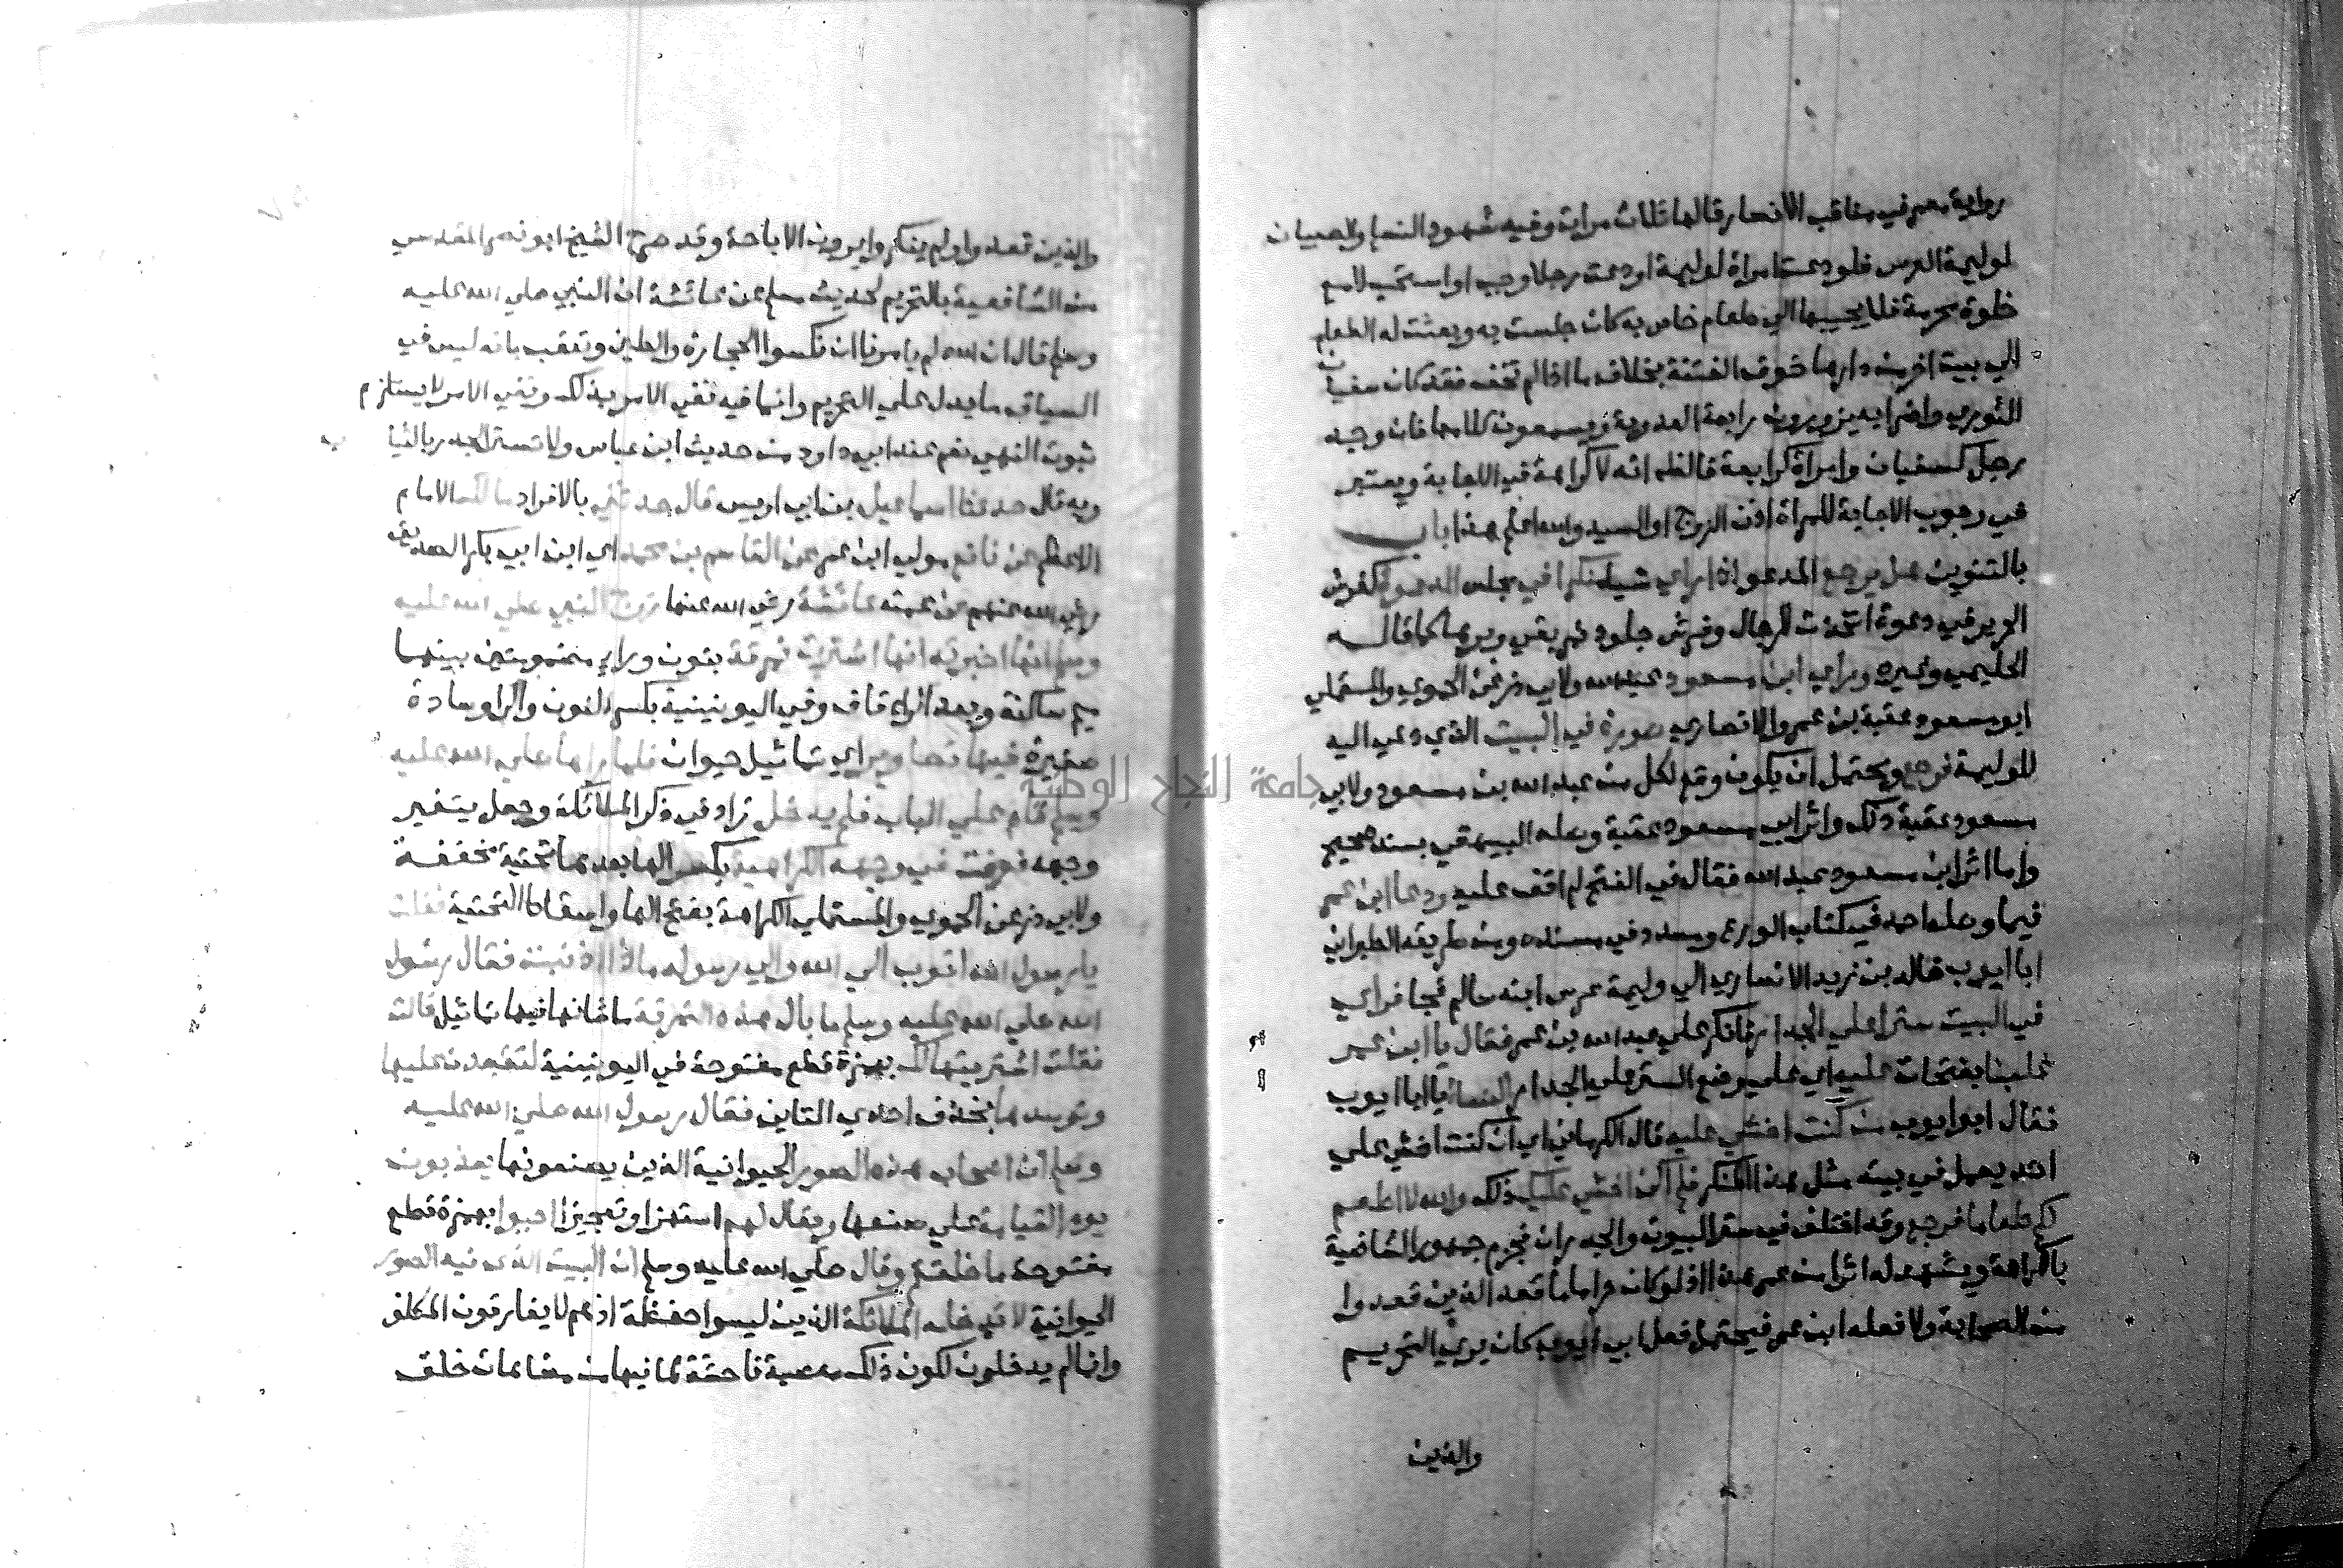 رواية معمر في مناقب الانصار قالها ثلاث مرات وفيه شهود النسا والصبيان
لوليمة العرس فلو دعت امراة لوليمة او دعت رجلا وجب او استحب لامع
خلوة محرمة فلا يجيبها الي طعام خاص به كان جلست به وبعثت له الطعام
الي بيت اخر من دارها خوف الفتنة بخلاف ما اذا لم تخف فقد كان سفيان
الثوري واضرابه يزورون رابعة العدوية ويسمعون كلامها فان وجد
رجل كسفيان وامراة كرابعة فالظاهر انه لا كراهة في الاجابة ويعتبر
في وجوب الاجابة للمراة اذن الزوج او السيد والله اعلم هذا باب
بالتنوين هل يرجع المدعو اذا راي شيا منكرا في مجلس الدعوة كفرش
الحرير في دعوة اتخذت للرجال وفرش جلود نمر بقي وبرها كما قاله
الحليمي وغيره وراي ابن مسعود عبدالله ولابي ذر عن الحموي والمستملي
ابو مسعود عقبة بن عمرو الانصاري صورة في البيت الذي دعي اليه
للوليمة فرجع ويحتمل ان يكون وقع لكل من عبد الله بن مسعود ولابي
مسعود عقبة ذلك واثر ابي مسعود عقبة وصله البيهقي بسند صحيح
واما اثر ابن مسعود عبد الله فقال في الفتح لم اقف عليه ودعا ابن عمر
فيما وصله احمد في كتاب الورع ومسدد في مسنده ومن طريقه الطبراني
ابا ايوب خالد بن زيد الانصاري الي وليمة عرس ابنه سالم فجا فراي
في البيت سترا علي الجدار فانكر علي عبد الله بن عمر فقال يا ابن عمر
غلبنا بفتحات عليه اي علي وضع الستر علي الجدار النسا يا ابا ايوب
فقال ابو ايوب من كنت اخشي عليه قال الكرماني اي ان كنت اخشي علي
احد يعمل في بيته مثل هذا المنكر فلم اكن اخشي عليك ذلك والله لا اطعم
لكم طعاما فرجع وقد اختلف في ستر البيوت والجدران فجزم جمهور الشافعية
بالكراهة ويشهد له اثر ابن عمر هذا اذ لو كان حراما ما قعد الذين قعدوا
من الصحابة ولا فعله ابن عمر فيحتمل فعل ابي ايوب كان يري التحريم
والذين
والذين قعدوا ولم ينكروا يرون الاباحة وقد صرح الشيخ ابو نصر المقدسي
من الشافعية بالتحريم لحديث مسلم عن عائشة ان النبي صلي الله عليه
وسلم قال ان الله لم يامرنا ان نكسوا الحجارة والطين وتعقب بانه ليس في
السياق ما يدل علي التحريم وانما فيه نفي الامر بذلك ونفي الامر لا يستلزم
ثبوت النهي نعم عند ابي داود من حديث ابن عباس ولا تستر الجدر بالثياب
وبه قال حدثنا اسماعيل بن ابي اويس قال حدثني بالافراد مالك الامام
الاعظم عن نافع مولي ابن عمر عن القاسم بن محمد اي ابن ابي بكر الصديق
رضي الله عنهم عن عمته عائشة رضي الله عنها زوج النبي صلي الله عليه
وسلم انها اخبرته انها اشترت نمرقة بنون وراي مضمومتين بينهما
ميم ساكنة وبعد الراي قاف وفي اليونينية بكسر النون والراوسادة
صغيرة فيها تصاوير اي تماثيل حيوان فلما راها صلي الله عليه
وسلم قام علي الباب فلم يدخل زاد في ذكر الملائكة وجعل يتغير
وجهه فعرفت في وجهه الكراهية بكسر الها بعدها تحتية مخففة
ولابي ذر عن الحموي والمستملي الكراهة بفتح الها واسقاط التحتية فقلت
يا رسول الله اتوب الي الله والي رسوله ماذا اذنبت فقال رسول
الله صلي الله عليه وسلم ما بال هذه النمرقة ما شانها فيها تماثيل قالت
فقلت اشتريتها لك بهمزة قطع مفتوحة في اليونينية لتقعد عليها
وتوسدها بحذف احدي التاين فقال رسول الله صلي الله عليه
وسلم ان اصحاب هذه الصور الحيوانية الذين يصنعونها يعذبون
يوم القيامة علي صنعها ويقال لهم استهزا وتعجيزا احيوا بهمزة قطع
مفتوحة ما خلقتم وقال صلي الله عليه وسلم ان البيت الذي فيه الصور
الحيوانية لا تدخله الملائكة الذين ليسوا حفظة اذ هم لا يفارقون المكلف
وانما لم يدخلون لكون ذلك معصية فاحشة لما فيها من مضاهات خلق